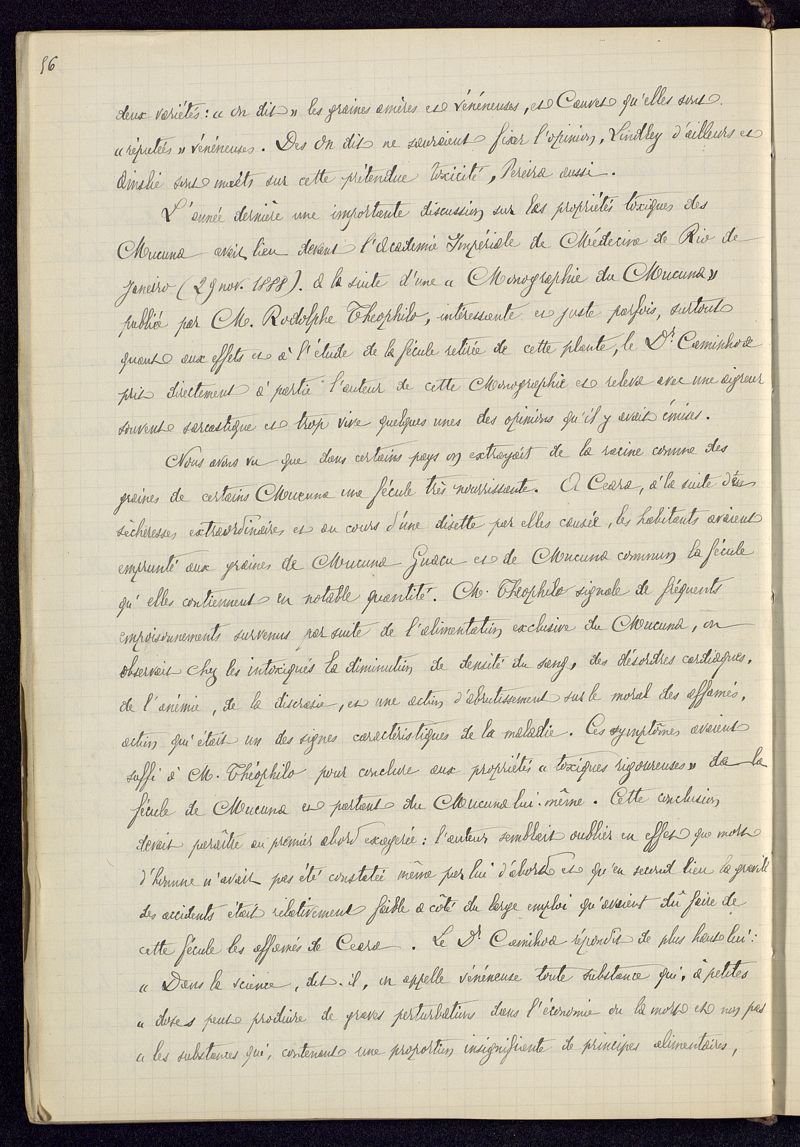 56
deux variétés : « on dit » les graines amères et vénéneuses, et Cauvet qu'elles sont
« réputées » vénéneuses. Des on dit ne sauraient fixer l'opinion, Lindley d'ailleurs et
Ainslie sont muets sur cette prétendue toxicité, Pereira aussi.
L'année dernière une importante discussion sur les propriétés toxiques des
Mucuna avait lieu devant l'Académie Impériale de Médecine de Rio de
Janeiro (29 nov. 1888). à la suite d'une « Monographie du Mucuna »
publiée par M. Rodolphe Théophilo, intéressante et juste parfois, surtout
quant aux effets et à l'étude de la fécule retirée de cette plante, le Dr Caminhoa
prit directement à partie l'auteur de cette Monographie et releva avec une aigreur
souvent sarcastique et trop vive quelques unes des opinions qu'il y avait émises.
Nous avons vu que dans certains pays on extrayait de la racine comme des
graines de certains Mucuna une fécule très nourrissante. A Ceara, à la suite
sècheresses extraordinaires et au cours d'une disette par elles causée, les habitants avaient
emprunté aux graines de Mucuna Guacu et de Mucuna commun la fécule
qu'elles contiennent en notable quantité. M. Théophilo signale de fréquents
empoisonnements survenus par suite de l'alimentation exclusive du Mucuna, on
observait chez les intoxiqués la diminution de densité du sang, des désordres cardiaques,
de l'anémie, de la discrasie, et une action d'abrutissement sur le moral des affamés,
action qu'était un des signes caractéristiques de la maladie. Ces symptômes avaient
suffi à M. Théophilo pour conclure aux propriétés « toxiques rigoureuses » da la
fécule de Mucuna et partant du Mucuna lui-même. Cette conclusion
devait paraître au premier abord exagerée : l'auteur semblait oublier en effet que mort
d'homme n'avait pas été constatée même par lui d'abord et qu'en second lieu la gravité
des accidents était relativement faible à côté du large emploi qu'avaient dû faire de
cette fécule les affamés de Ceara. Le Dr Camihoa répondit de plus haut lui :
« Dans la science, dit-il, on appelle vénéneuse toute substance qui, à petites
« doses peut produire de graves perturbations dans l'économie ou la mort et non pas
« les substances qui, contenant une proportion insignifiante de principes alimentaires,